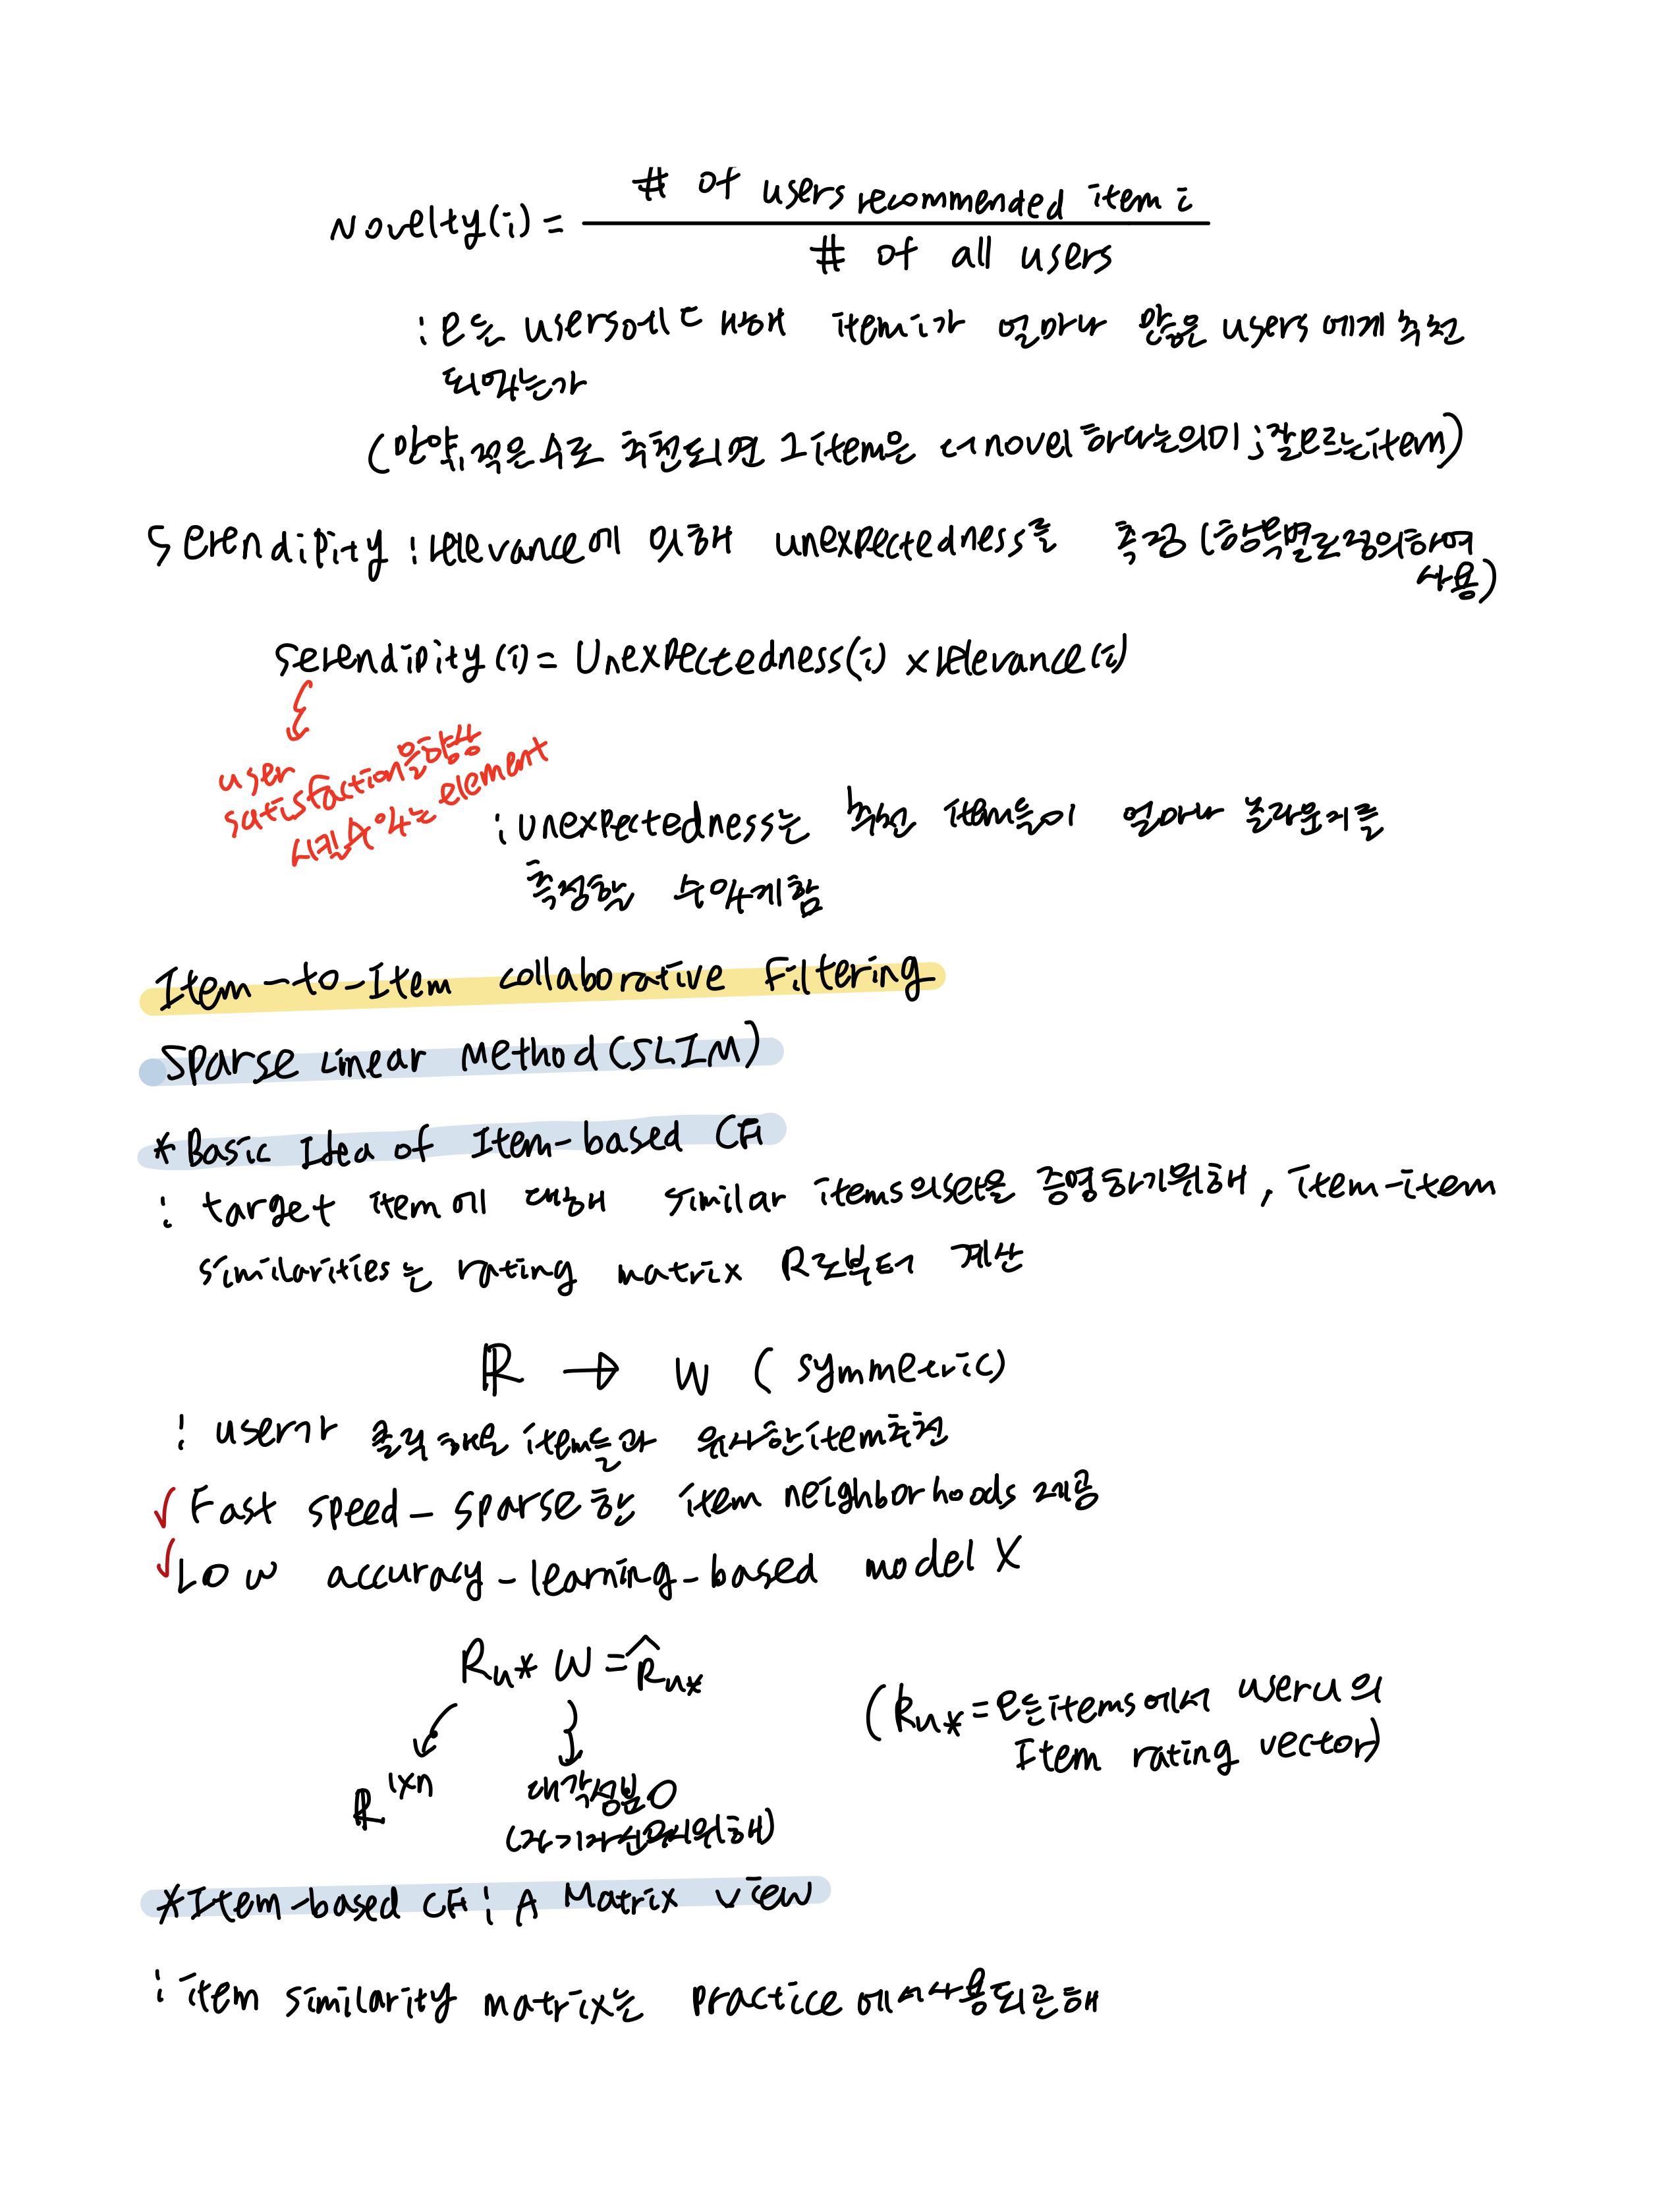 # of users recommended item i
Novelty(i) = ─────────
# of all users
: 모든 users에 대해 item i가 얼마나 많은 users에게 추천
되었는가
(만약, 적은 수로 추천되면 그 item은 더 novel하다는 의미; 잘 모르는 item)
Serendipity : relevance에 의해 unexpectedness를 측정 (항목별로 정의하여
사용)
Serendipity(i) = Unexpectedness(i) × relevance(i)
user
satisfaction을 향상
시킬 수 있는 element
: unexpectedness는 추천 item들이 얼마나 놀라운지를
측정할 수 있게함
Item-to-Item collaborative Filtering
Sparse Linear Method (SLIM)
* Basic Idea of Item-based CF
: target item에 대해 similar items의 set을 증명하기위해, item-item
similarities는 rating matrix R로부터 계산
R → W (symmetric)
: user가 클릭해온 item들과 유사한 item 추천
✓ Fast speed - sparse한 item neighborhoods 제공
✓ Low accuracy - learning-based model X
Ru* W = R̂u*
(Ru* = 모든 items에서 user u의
Item rating vector)
R^1×n
대각성분 0
(자기자신 위해)
* Item-based CF : A Matrix view
: item similarity matrix는 practice에서 사용되곤 해